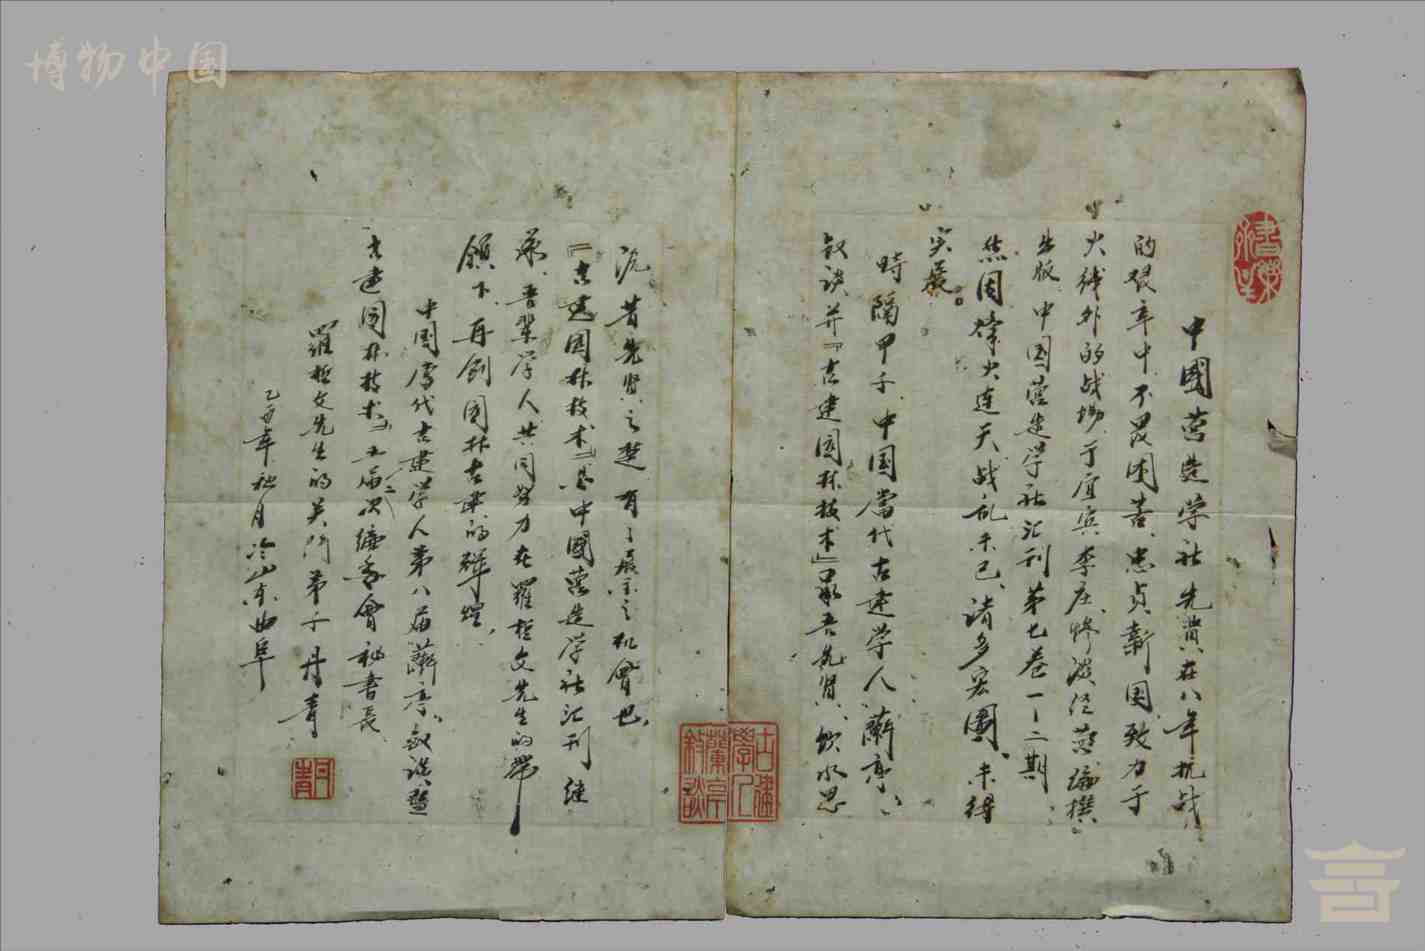 博物中国
中國营造学社先贤在八年抗战
的艰辛中、不畏困苦、忠贞新国致力于
火线外的战场、于宜宾李庄、惨淡经营编撰
出版中国营造学社汇刊第七卷一、二期
然因烽火连天战乱未已、诸多宏圖、未得
实展。
時隔甲子、中国當代古建学人蘭亭、
叙谈并『古建園林技术』承吾先贤、饮水思
沅昔先贤之楚有之展示之机會也、
『古建园林技术』是中國营造学社汇刊继
承、吾辈学人共同努力在羅哲文先生的带
领下、再創園林古建的辉煌、
中国當代古建学人第八届蘭亭、叙谈暨
古建园林技术』五届二次编委會秘书長
羅哲文先生的关门弟子丹青
乙酉年 月冷山东曲阜
丹青
古建學人蘭亭敍談